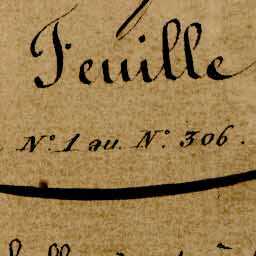 Feuille
N.° 1 au N.° 306.